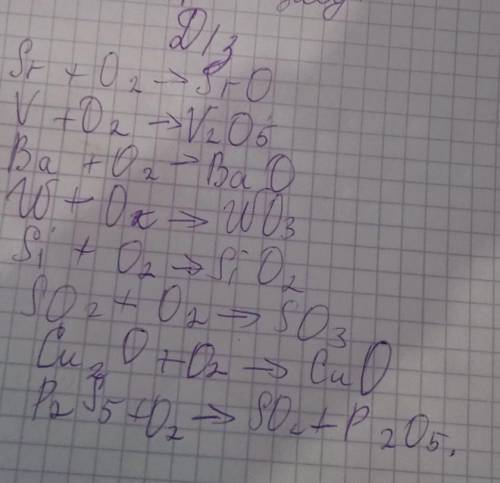 D/з
Sr + O2 → SrO
V + O2 → V2O5
Ba + O2 → BaO
W + O2 → WO3
Si + O2 → SiO2
SO2 + O2 → SO3
Cu2O + O2 → CuO
P2S5 + O2 → SO2 + P2O5.